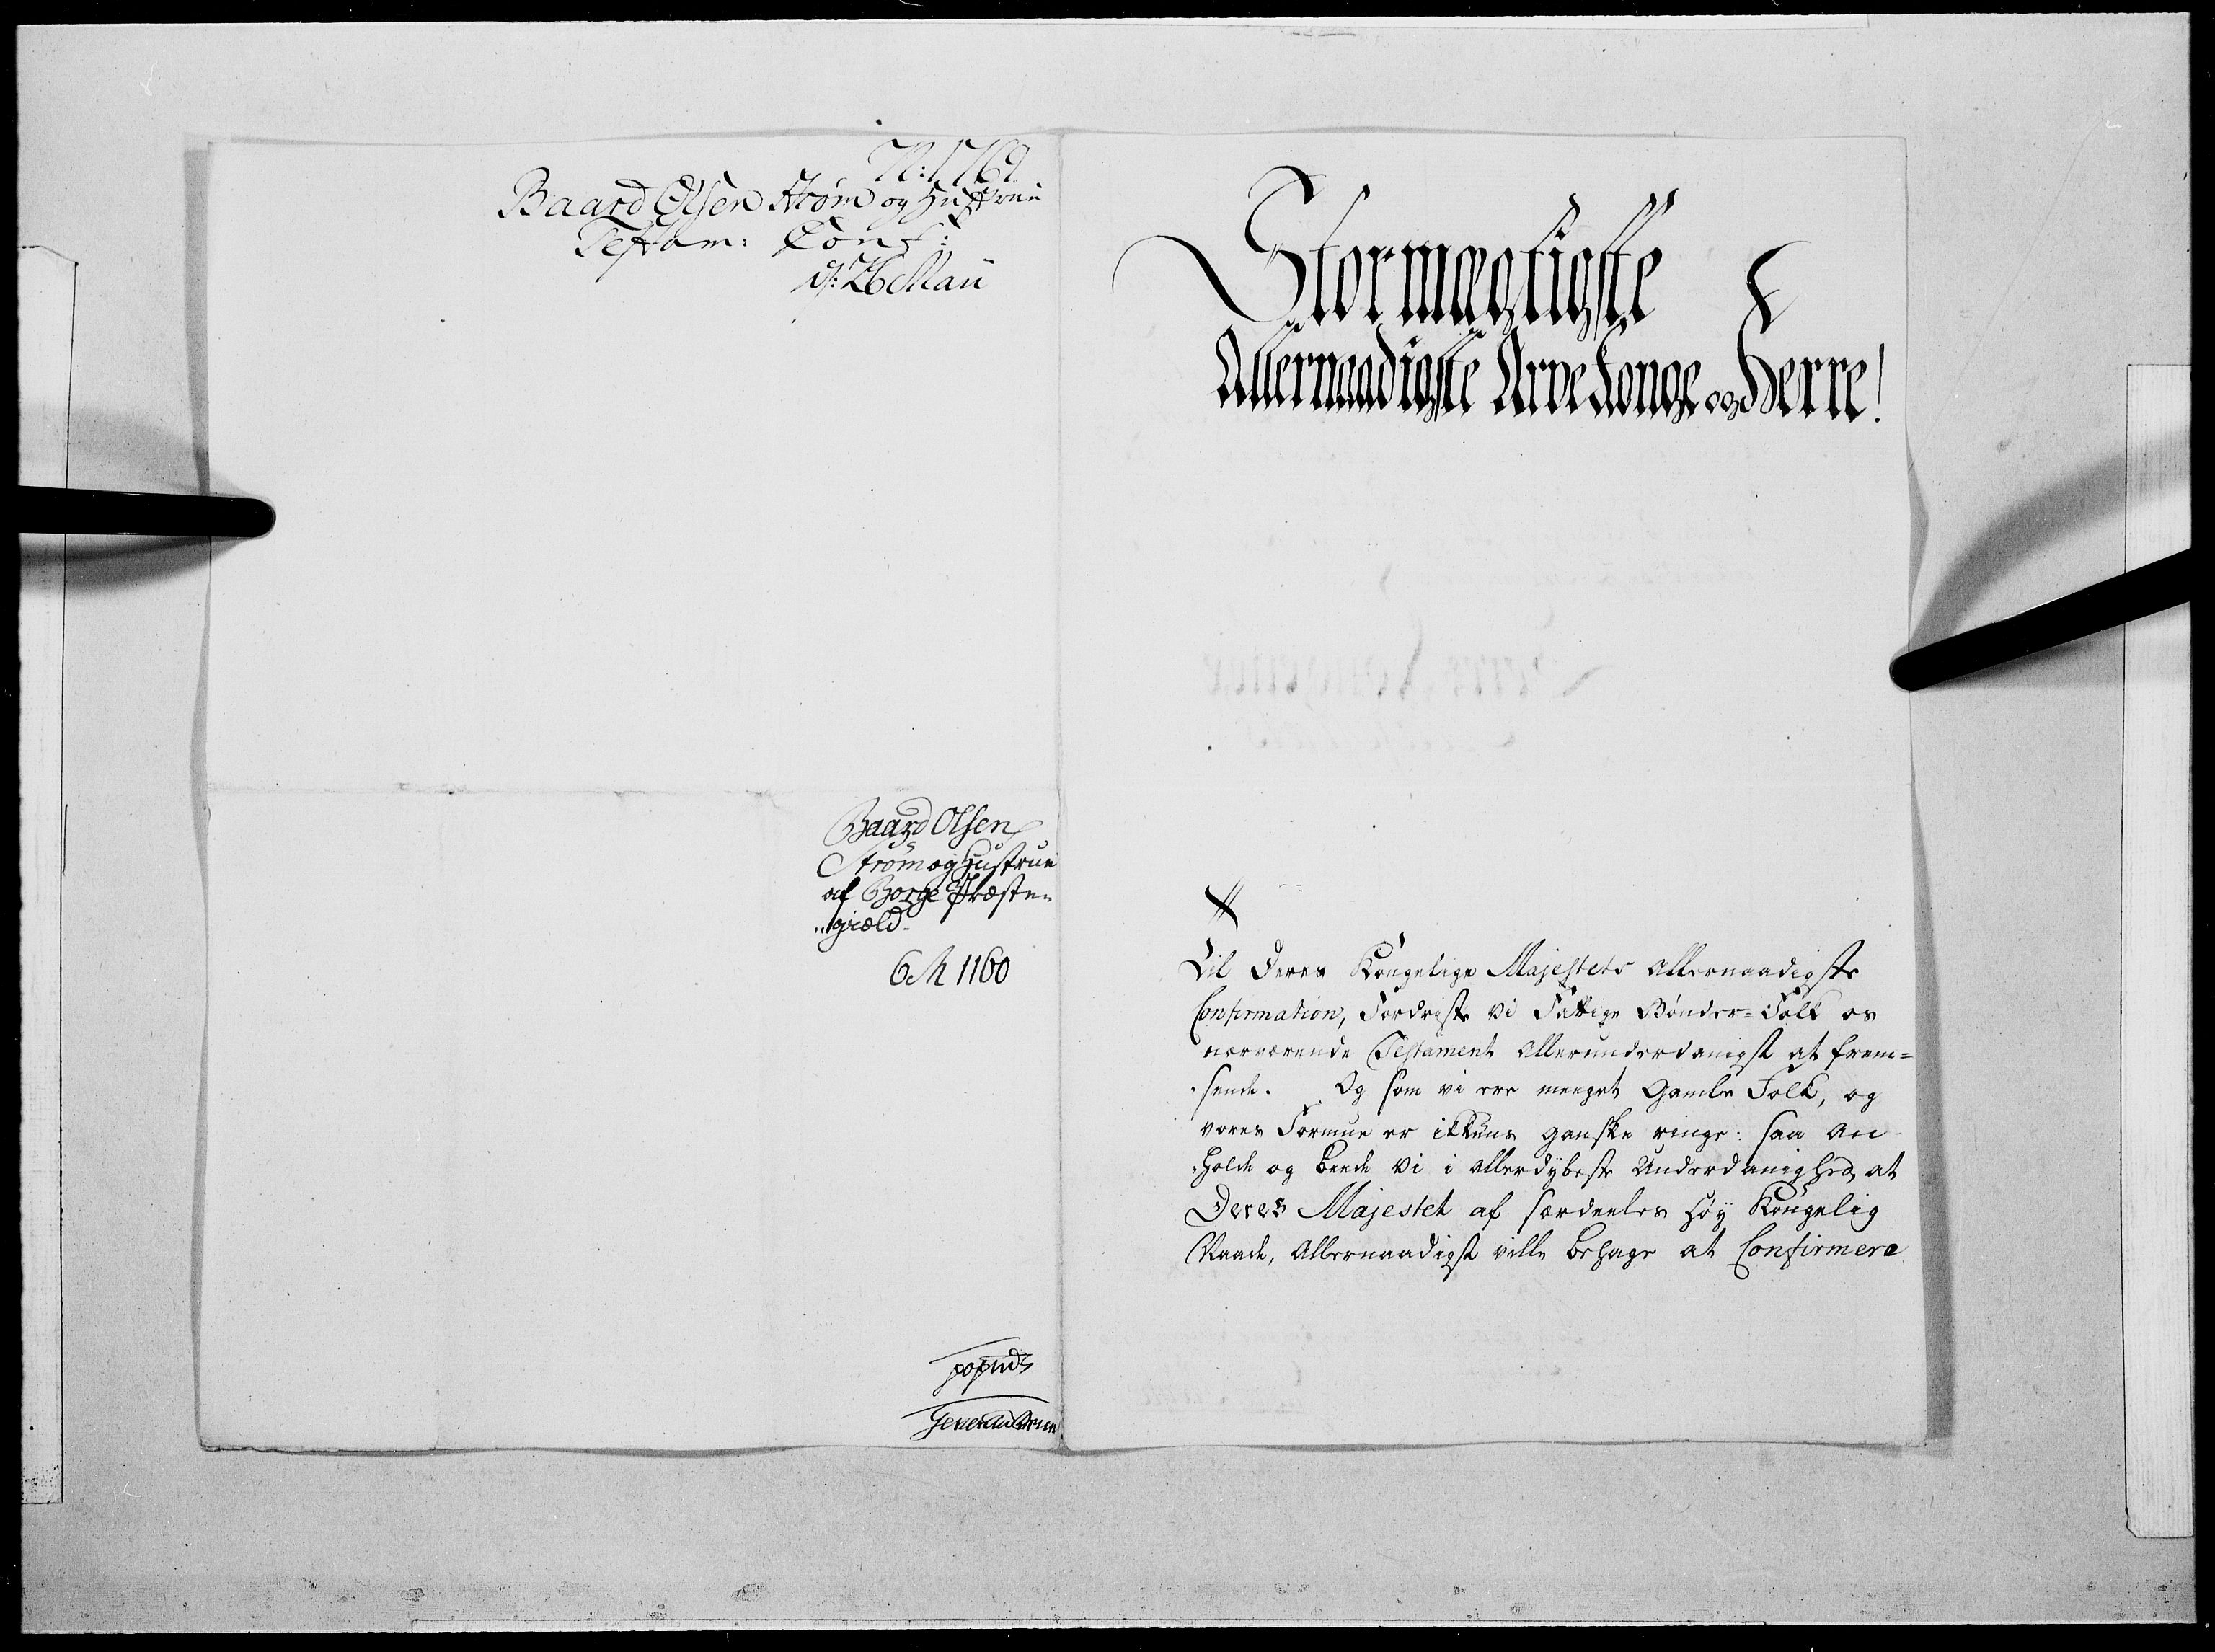 N: 1769
Baard Olsen Strøm og Hustrue
Testam: Conf:
d: 26 Maii
Baard Olsen
Strøm og Hustrue
af Borge Præste-
"giæld
6 M 1160
Stormægtigste
Allernaadigste Arve Konge og Herre!
Til Deres Kongelige Majestets Allernaadigste
Confirmation, Fordriste vi Fattige Bønder-Folk os
nærværende Testament Allerunderdanigst at frem=
sende. Og som vi ere meeget Gamle Folk, og
vores Formue er ikkuns ganske ringe: saa an
holde og beede vi i allerdybeste Underdanighed, at
Deres Majestet af særdeeles Høy Kongelig
Naade, Allernaadigst ville behage at Confirmere